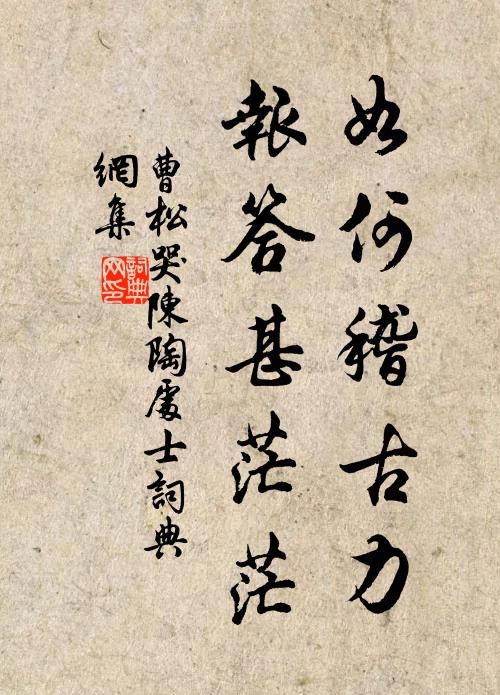 如何稽古力
報答甚茫茫
曹松哭陳陶處士詞典
網集
詞典
网印